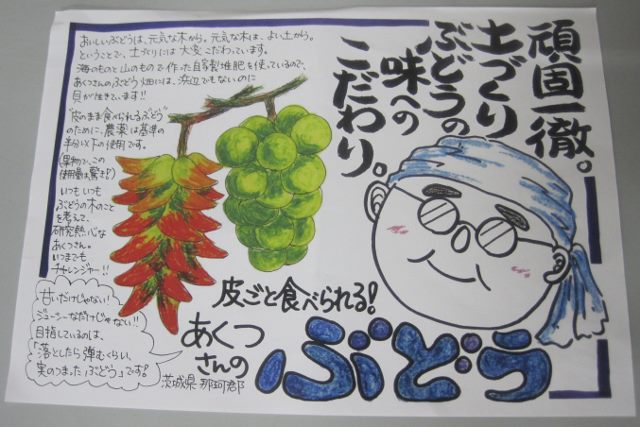 頑固一徹。
土づくり
ぶどうの
味への
こだわり。
おいしいぶどうは、元気な木から。元気な木は、よい土から。
ということで、土づくりには大変こだわっています。
海のものと山のもので作った自家製堆肥を使っているので、
あくつさんのぶどう畑には、浜辺でもないのに
貝が生きています!!
"皮のまま食べられるぶどう"
のために、農薬は基準の
半分以下の使用です。
(果物で、この
使用量は驚き!?)
いつもいつも
ぶどうの木のこと
を考えて、
研究熱心な
あくつさん。
いつまでも
チャレンジャー!!
甘いだけじゃない!
ジューシーなだけじゃない!!
目指しているのは、
「落としたら弾むくらい、
実のつまったぶどう」です。
皮ごと食べられる!
あくつ
さんの
ぶどう
茨城県那珂郡